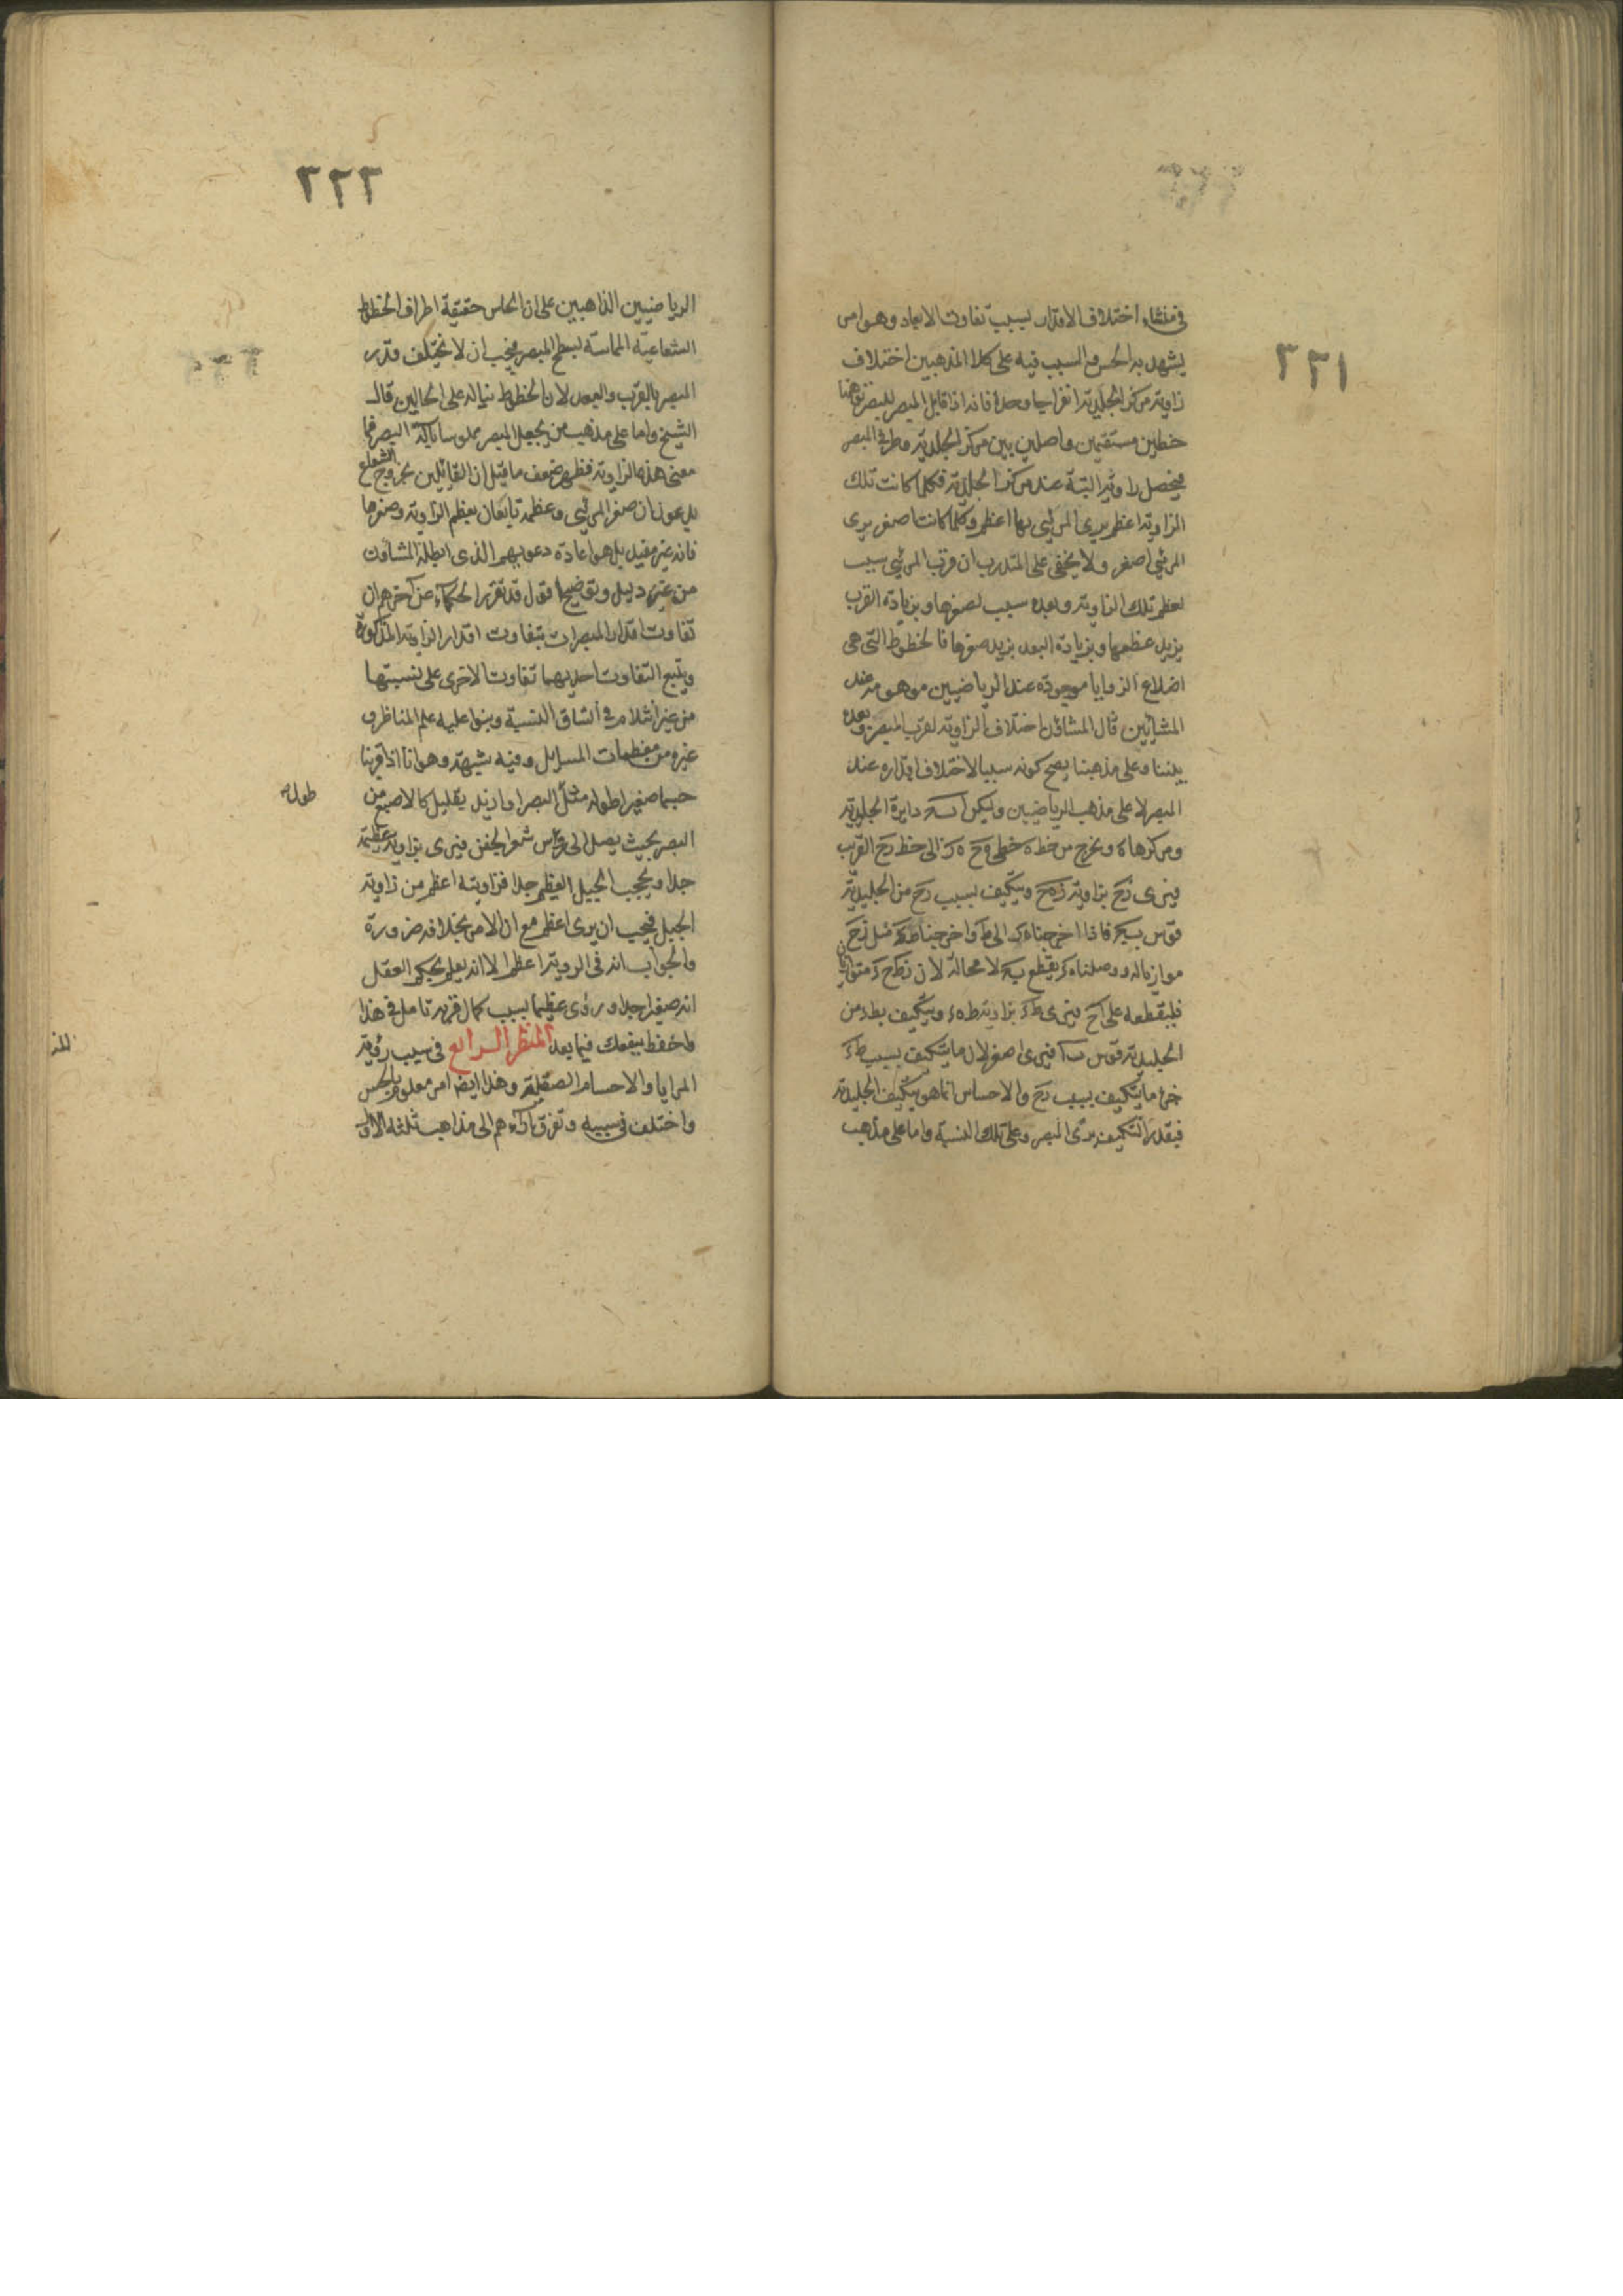 ٣٢١
في منشاء اختلاف الاقدار بسبب تفاوت الابعاد وهو امر
يشهد به الحس والسبب فيه على كلا المذهبين اختلاف
زاوية مركز الجليدية انفراجا وحدة فانه اذا قابل المبصر للبصر توهمنا
خطين مستقيمين واصلين بين مركز الجليدية وطرفي المبصر
فيحصل زاوية البتة عند مركز الجليدية فكلما كانت تلك
الزاوية اعظم يرى المرئي بها اعظم وكلما كانت اصغر يرى
المرئي اصغر ولا يخفى على المتدرب ان قرب المرئي سبب
لعظم تلك الزاوية وبعده سبب لصغرها وبزيادة القرب
يزيد عظمها وبزيادة البعد يزيد صغرها فالخطوط التي هي
اضلاع الزوايا موجودة عند الرياضيين موهومة عند
المشائين قال المشاؤن اختلاف الزاوية لقرب المبصر وبعده
بيننا وعلى مذهبنا يصح كونه سببا لاختلاف اقداره عند
المبصر لا على مذهب الرياضيين وليكن دايرة الجليدية
ومركزها ه ونخرج من نقطة خطي الى خط رح القريب
فيرى رح بزاوية وستكيف بسبب رح من الجليدية
قوس فاذا اخرجنا الى واخرجنا مثل
موازيا له ووصلنا يقطع لا محالة لان متوازيان
فليقطعه على فيرى بزاوية وستكيف من
الجليدية قوس فيرى اصغر لان ما يتكيف بسبب
جزء ما يتكيف بسبب رح والاحساس انما هو بتكيف الجليدية
فبقدر التكيف يرى المبصر وعلى تلك النسبة واما على مذهب
٣٢٢
الرياضيين الذاهبين على ان الحاس حقيقة اطراف الخطوط
الشعاعية المماسة لسطح المبصر فيجب ان لا يختلف قدر
المبصر بالقرب والبعد لان الخطوط يناله على الحالين قال
الشيخ واما على مذهب من يجعل المبصر ملموسا بآلة البصر فما
معنى هذه الزاوية فظهر ضعف ما قيل ان القائلين بخروج الشعاع
يدعون ان صغر المرئي وعظمه تابعان بعظم الزاوية وصغرها
فانه غير مفيد بل هو اعادة دعويهم الذي ابطله المشاؤن
من غير دليل وتوضيح اقول قد تقرر الحكماء عن آخرهم ان
تفاوت اقدار المبصرات بتفاوت اقدار الزاوية المذكورة
ويتبع التفاوت احديهما تفاوت الاخرى على نسبتها
من غير انثلام في اتساق النسبة وبنوا عليه علم المناظر و
غيره من معظمات المسايل وفيه شبهة وهو انا اذا قربنا
جسما صغيرا طوله مثل البصر او ازيد بقليل كالاصبع من
طوله
البصر بحيث يصل الى راس شعر الجفن فيرى بزاوية عظيمة
جدا ويحجب الجبل العظيم جدا فزاويته اعظم من زاوية
الجبل فيجب ان يرى اعظم مع ان الامر بخلافه ضرورة
والجواب انه في الروية اعظم الا انه يعلم بحكم العقل
انه صغير جدا ورؤى عظيما بسبب كمال قربه تامل في هذا
واحفظ ينفعك فيما بعد المنظر الرابع في سبب رؤية
المرايا والاجسام الصقلة وهذا ايضا امر معلوم بالحس
واختلف في سببه وتفرق آراؤهم الى مذاهب ثلثة الاول